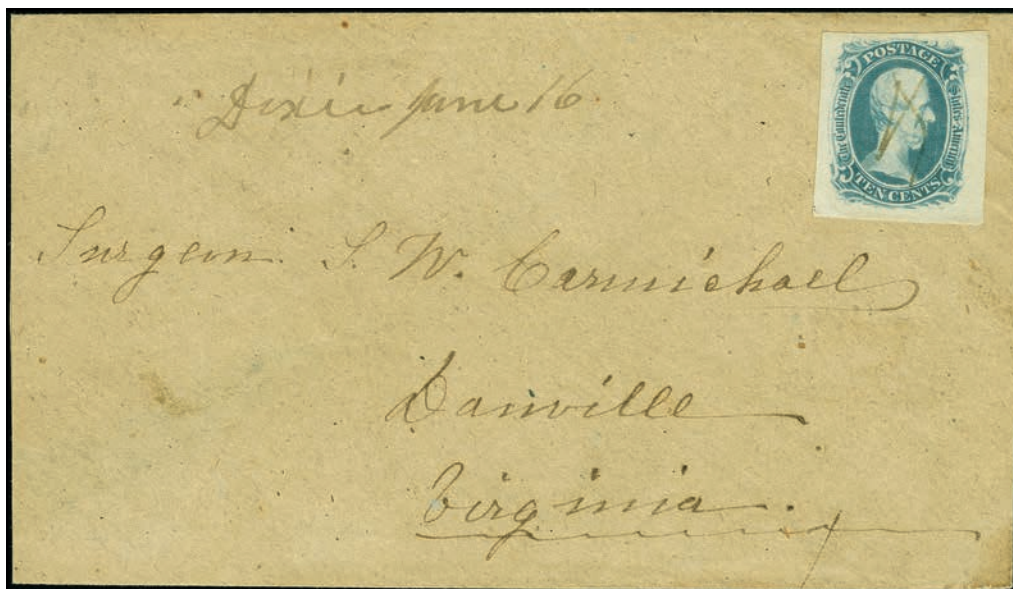 Dixie June 16
POSTAGE
The Confederate States of America
TEN CENTS
Surgeon S. W. Carmichael
Danville
Virginia